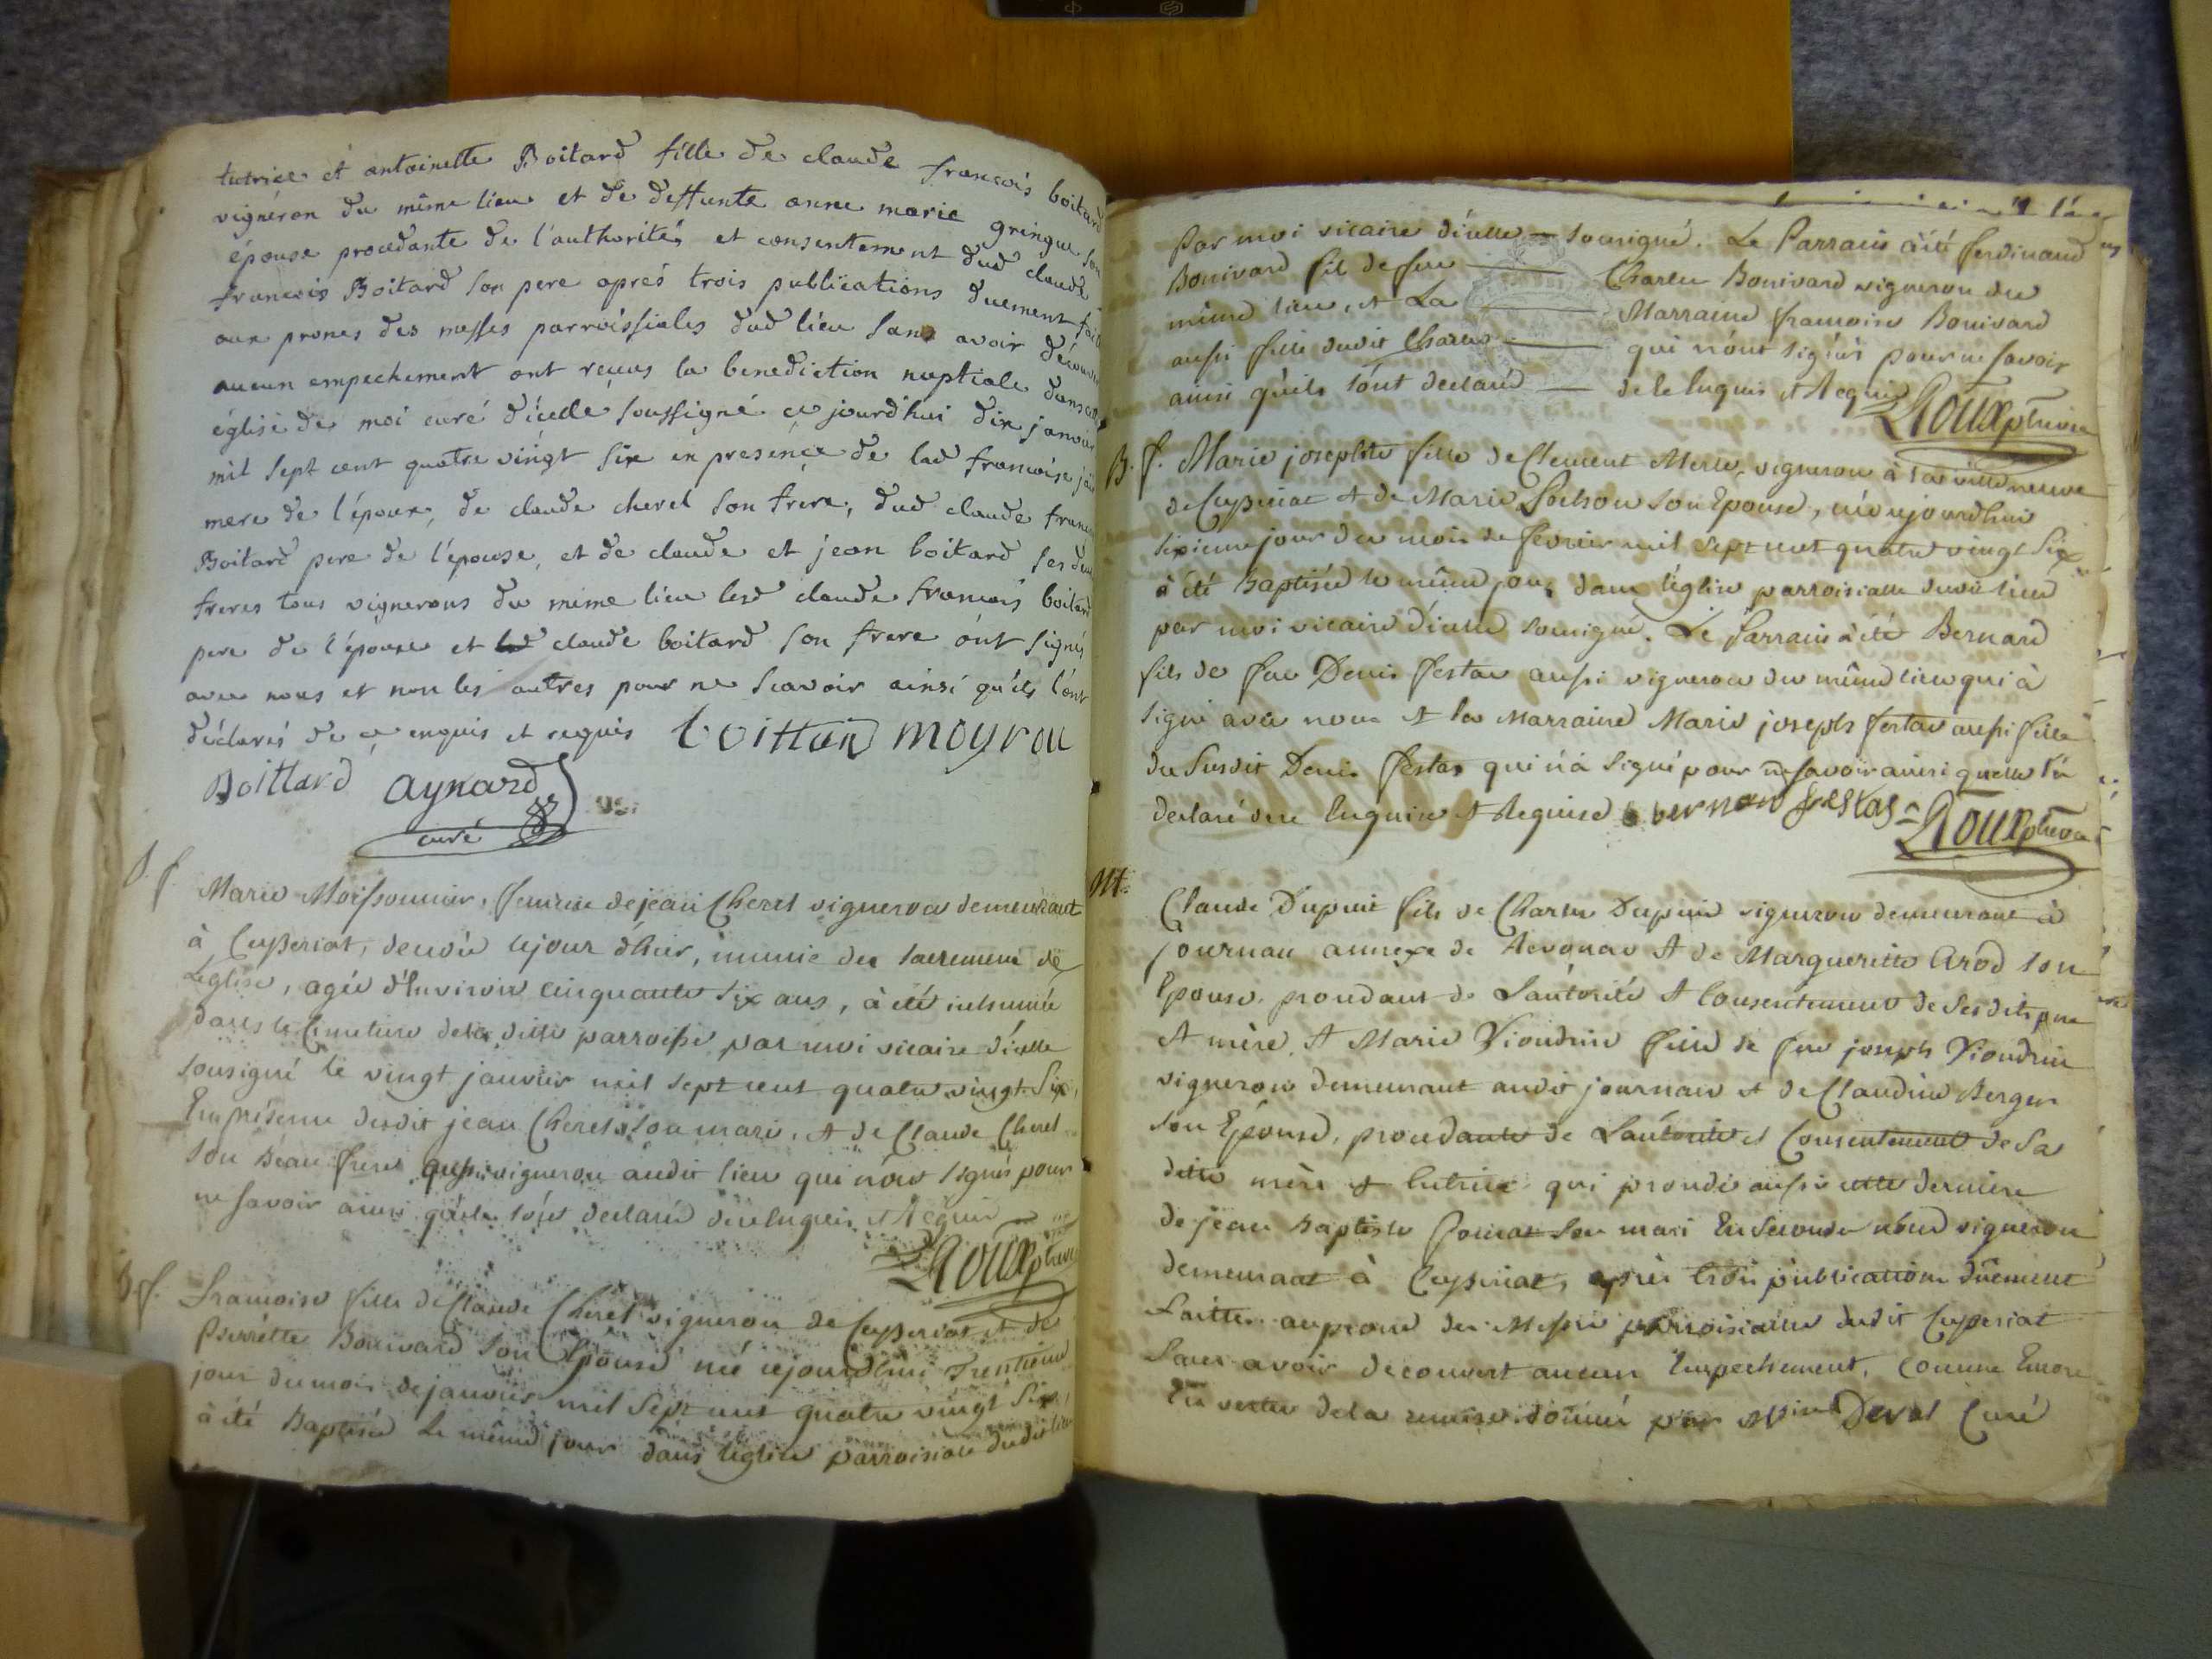 tutrice et antoinette Boitard fille de claude francois boitard
vigneron du même lieu et de deffunte anne marie gringue son
épouse procedante de l'authorité, et consentement dud claude
francois Boitard son pere aprés trois publications duement faites
aux prones des messes parroissiales dud lieu sans avoir découvert
aucun empechement ont reçus la benediction nuptiale dans cette
église de moi curé d'icelle soussigné ce jourd'hui dix janvier
mil sept cent quatre vingt six en presençe de lad francoise
mere de l'époux, de claude cherel son frere, dud claude francois
Boitard pere de l'épouse, et de claude et jean boitard ses deux
freres tous vignerons du même lieu lesd claude francois boitard
pere de l'épouse et claude boitard son frere ont signés
avec nous et non les autres pour ne scavoir ainsi qu'ils l'ont
déclarés de ce enquis et requis boittard moyrou
Boittard aynard
curé
S. f. Marie Moissonnier, femme de jean Cherel vigneron demeurant
à Cuyseriat, decedée le jour d'hier, munie des sacrements de
L'église, agée d'Environ cinquante six ans, à été inhumée
dans le Cimetiere de la ditte parroisse par moi vicaire d'icelle
sousigné le vingt janvier mil sept cent quatre vingt Six,
En présence dudit jean Cherel son mari, et de Claude Cherel
son beau frere aussi vigneron audit lieu qui n'ont signés pour
ne savoir ainsi qu'ils l'ont declaré de ce Enquis et Requis
Roux ptre vic
B. f. Francoise fille de Claude Cherel vigneron de Cuyseriat et de
Pierrette Bonivard son Epouse née cejourd'hui Trentieme
jour du mois de janvier mil Sept cent quatre vingt Six,
à été Baptisée le même jour dans l'église parroisiale dudit lieu
Par moi vicaire d'icelle sousigné. Le Parrain à été ferdinand
Bonivard fils de feu Charles Bonivard vigneron du
même lieu, et La Marraine francoise Bonivard
aussi fille dudit Charles qui n'ont signés pour ne savoir
ainsi qu'ils l'ont declaré de ce Enquis et Requis
Roux ptre vic
B. f. Marie josephte fille de Clement Merle, vigneron à la villeneuve
de Cuyseriat et de Marie Poelson son Epouse, née cejourd'hui
sixieme jour du mois de fevrier mil sept cent quatre vingt Six
à été Baptisée le même jour dans l'église parroisiale dudit lieu
par moi vicaire d'icelle sousigné. Le Parrain à été Bernard
fils de feu Denis festas aussi vigneron du même lieu qui à
signé avec nous et la marraine Marie joseph festas aussi fille
du Susdit Denis festas qui n'a Signé pour ne savoir ainsi quelle l'a
declaré de ce Enquise et Requise bernard festas Roux ptre vic
M. Claude Dupuit fils de Charles Dupuit vigneron demeurant à
journau annexe de Revonas et de Margueritte Arod son
Epouse procedant de L'autorité et Consentement de ses dits pere
et mère, et Marie Viondrin fille de feu joseph Viondrin
vigneron demeurant audit journau et de Claudine Berger
son Epouse, procedante de L'autorité et Consentement de Sa
ditte mère et tutrice qui procede aussi cette derniere
de jean Baptiste son mari En secondes noces vigneron
demeurant à Cuyseriat, après trois publications dûement
faittes au prone des Messes parroisiales dudit Cuyseriat
sans avoir decouvert aucun Empechement, comme Encore
En vertu de la remise donnée par Deval Curé